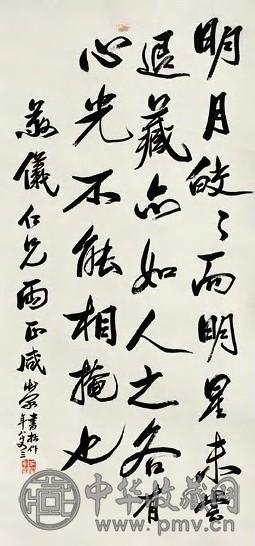 明月皎々而明星未嘗
退藏亦如人之各有
心光不能相掩也
儀仁兄雨正
年八十又三
中华收藏网
www.pmv.cn